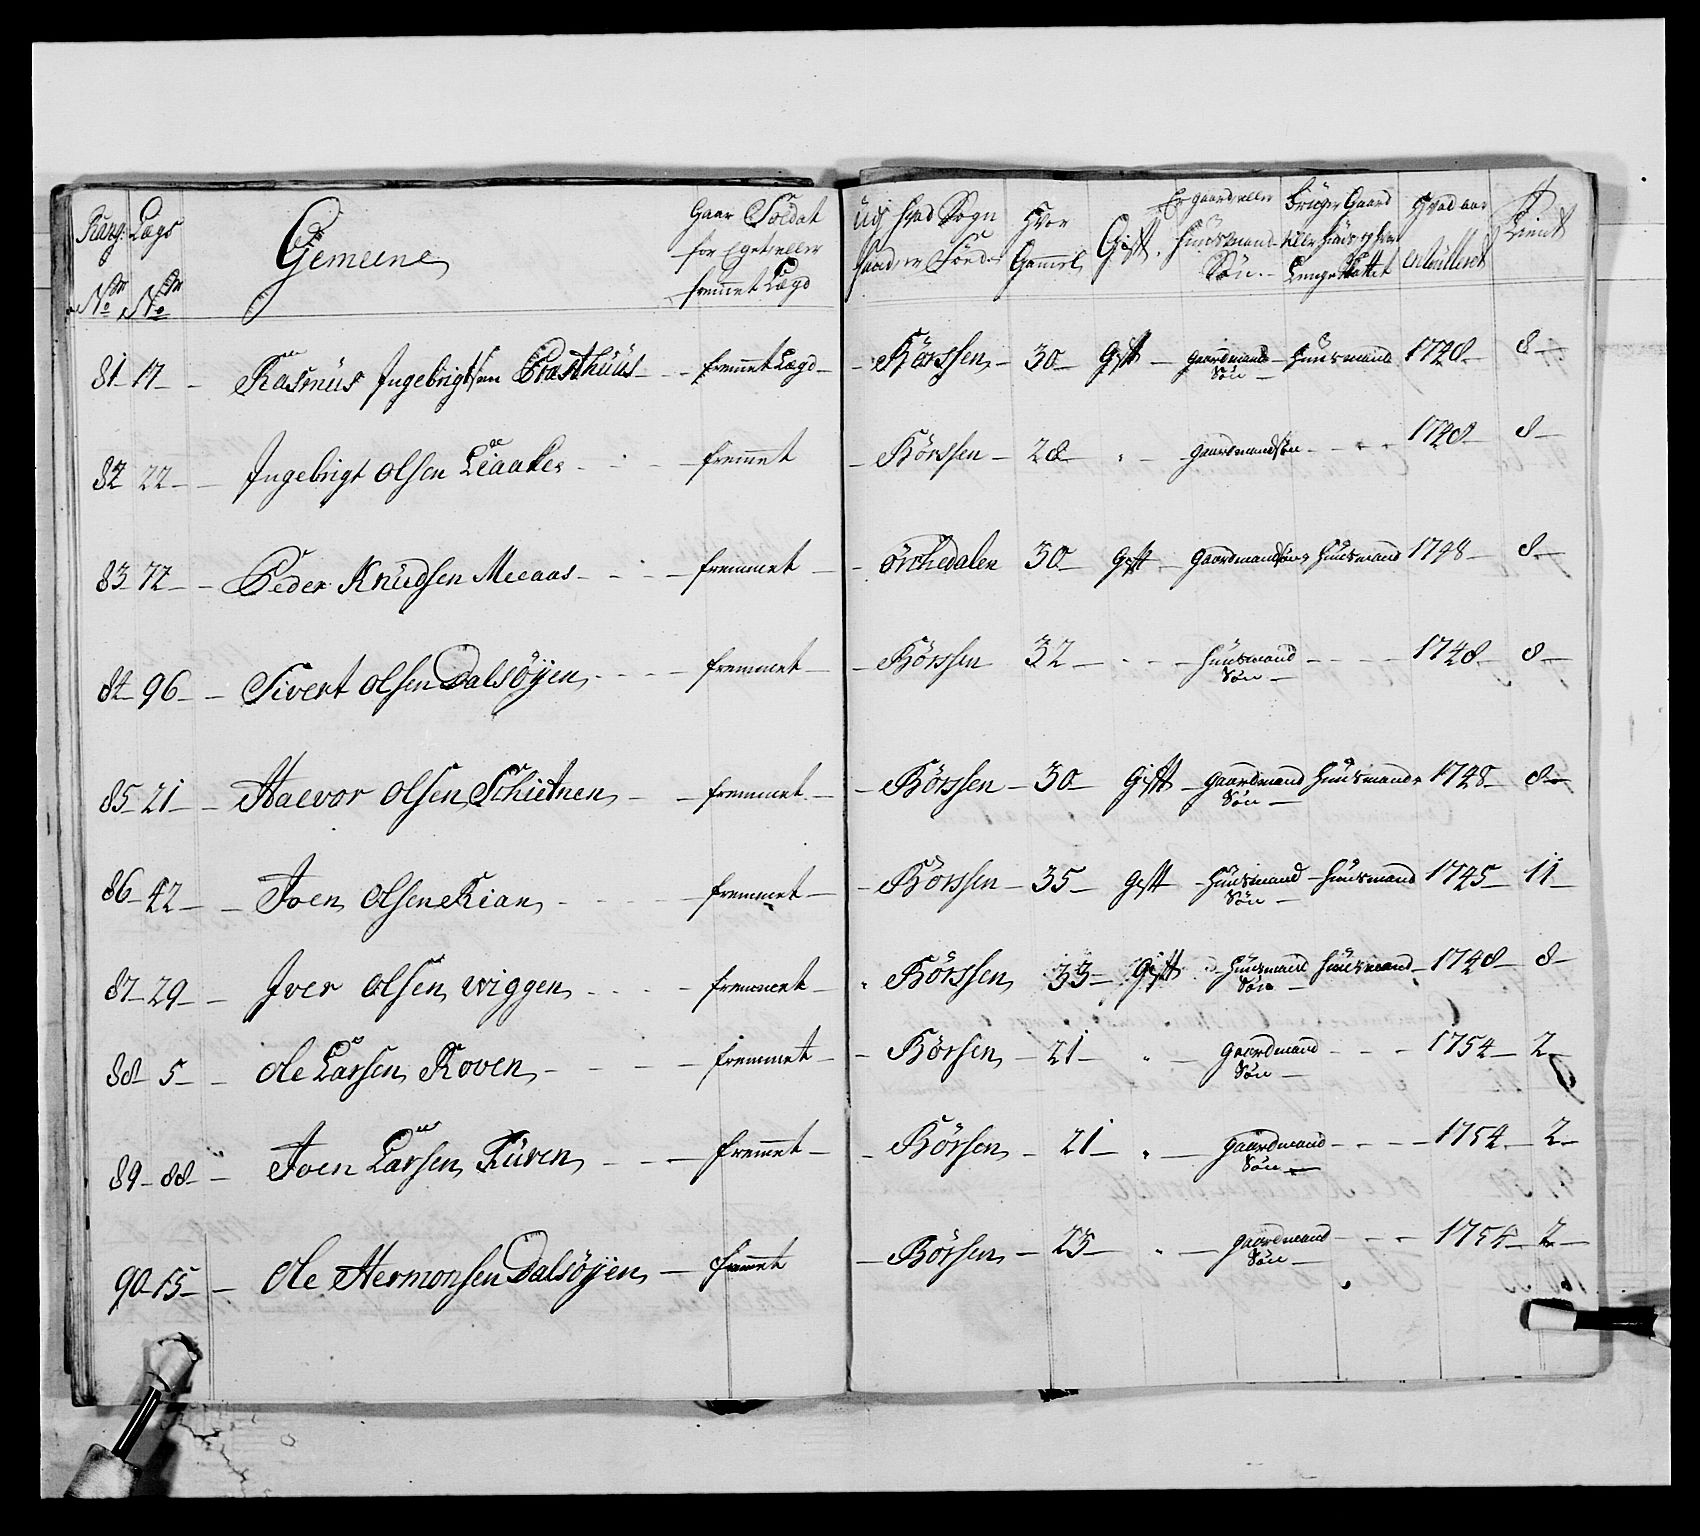 Rang: Lægs
No No
Gemeene
Gaar Soldat
for Eget eller
fremmet Lægd
Udj hvad Sogn
hand er Föed
Hvor
Gammel
Gift
Er gaard eller
huusmand
Sön
Bruger Gaard
eller huus
Hvad aar
enrulleret
Tient
81 17 Rasmus Ingebrigtsen Præsthuus fremmet Lægd Börssen 30 Gift gaardmand Sön huusmand 1748 8
82 22 Ingebrigt Olsen Leeaaker fremmet Börssen 28 gaardmand Sön 1748 8
83 72 Peder Knudsen Meeaas fremmet Örkedalen 30 Gift gaardmand Sön huusmand 1748 8
84 96 Sivert Olsen Dalsöyen fremmet Börssen 32 huusmand Sön 1748 8
85 21 Haevor Olsen Schietnen fremmet Börssen 30 Gift gaardmand Sön huusmand 1748 8
86 42 Joen Olsen Rian fremmet Börssen 35 Gift huusmand Sön huusmand 1745 11
87 29 Iver Olsen Wiggen fremmet Börssen 33 Gift huusmand Sön huusmand 1748 8
88 5 Ole Larsen Roven fremmet Börsen 21 gaardmand Sön 1754 2
89 88 Joen Larsen Ruven fremmet Börsen 21 gaardmand Sön 1754 2
90 15 Ole Hermonsen Dalsöyen fremmet Börsen 23 gaardmand Sön 1754 2